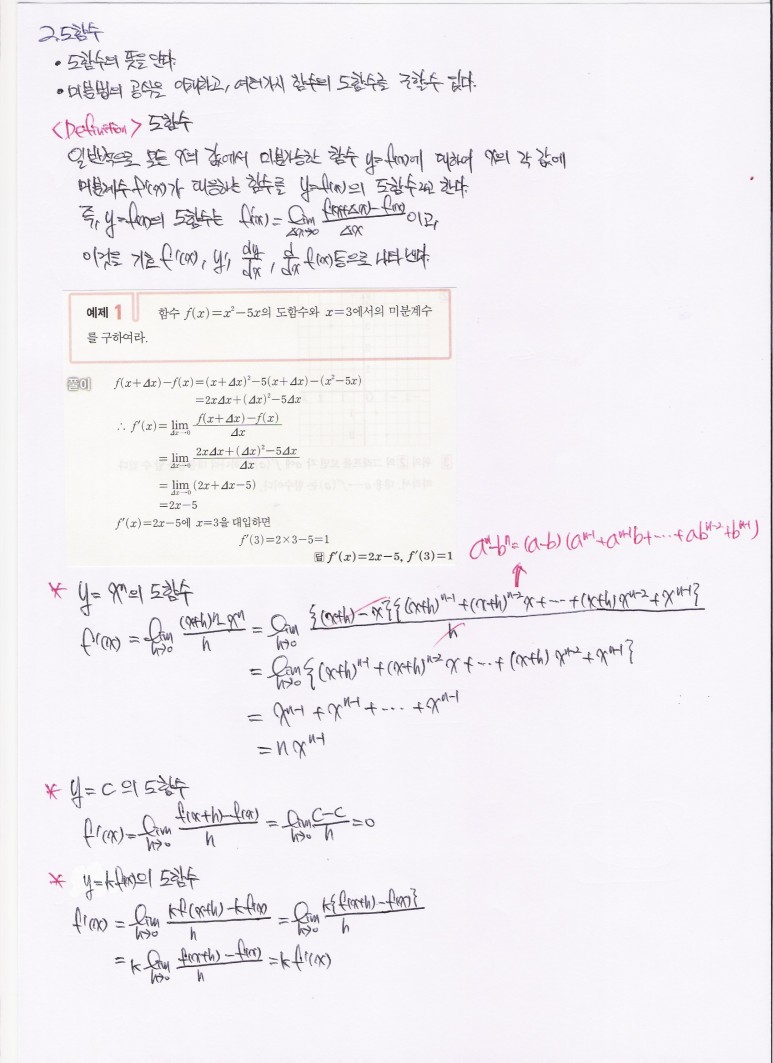 2. 도함수
• 도함수의 뜻을 안다.
• 미분법의 공식을 이해하고, 여러가지 함수의 도함수를 구할수 있다.
<Definition> 도함수
일반적으로 모든 x의 값에서 미분가능한 함수 y=f(x)에 대하여 x의 각 값에
미분계수 f'(x)가 대응하는 함수를 y=f(x)의 도함수라고 한다.
즉, y=f(x)의 도함수는 f'(x) = lim Δx→0 (f(x+Δx)-f(x))/Δx 이고,
이것을 기호 f'(x), y', dy/dx, d/dx f(x)등으로 나타낸다.
예제 1 함수 f(x)=x²-5x의 도함수와 x=3에서의 미분계수
를 구하여라.
풀이 f(x+Δx)-f(x)=(x+Δx)²-5(x+Δx)-(x²-5x)
=2xΔx+(Δx)²-5Δx
∴ f'(x)= lim Δx→0 (f(x+Δx)-f(x))/Δx
= lim Δx→0 (2xΔx+(Δx)²-5Δx)/Δx
= lim Δx→0 (2x+Δx-5)
=2x-5
f'(x)=2x-5에 x=3을 대입하면
f'(3)=2×3-5=1
답 f'(x)=2x-5, f'(3)=1
aⁿ-bⁿ=(a-b)(aⁿ⁻¹+aⁿ⁻¹b+⋯+abⁿ⁻²+bⁿ⁻¹)
* y=xⁿ의 도함수
f'(x) = lim h→0 ((x+h)ⁿ-xⁿ)/h = lim h→0 {(x+h)-x}{(x+h)ⁿ⁻¹+(x+h)ⁿ⁻²x+⋯+(x+h)xⁿ⁻²+xⁿ⁻¹}/h
= lim h→0 {(x+h)ⁿ⁻¹+(x+h)ⁿ⁻²x+⋯+(x+h)xⁿ⁻²+xⁿ⁻¹}
= xⁿ⁻¹+xⁿ⁻¹+⋯+xⁿ⁻¹
= nxⁿ⁻¹
* y=c의 도함수
f'(x)= lim h→0 (f(x+h)-f(x))/h = lim h→0 (c-c)/h =0
* y=kf(x)의 도함수
f'(x) = lim h→0 (kf(x+h)-kf(x))/h = lim h→0 k{f(x+h)-f(x)}/h
= k lim h→0 (f(x+h)-f(x))/h = kf'(x)